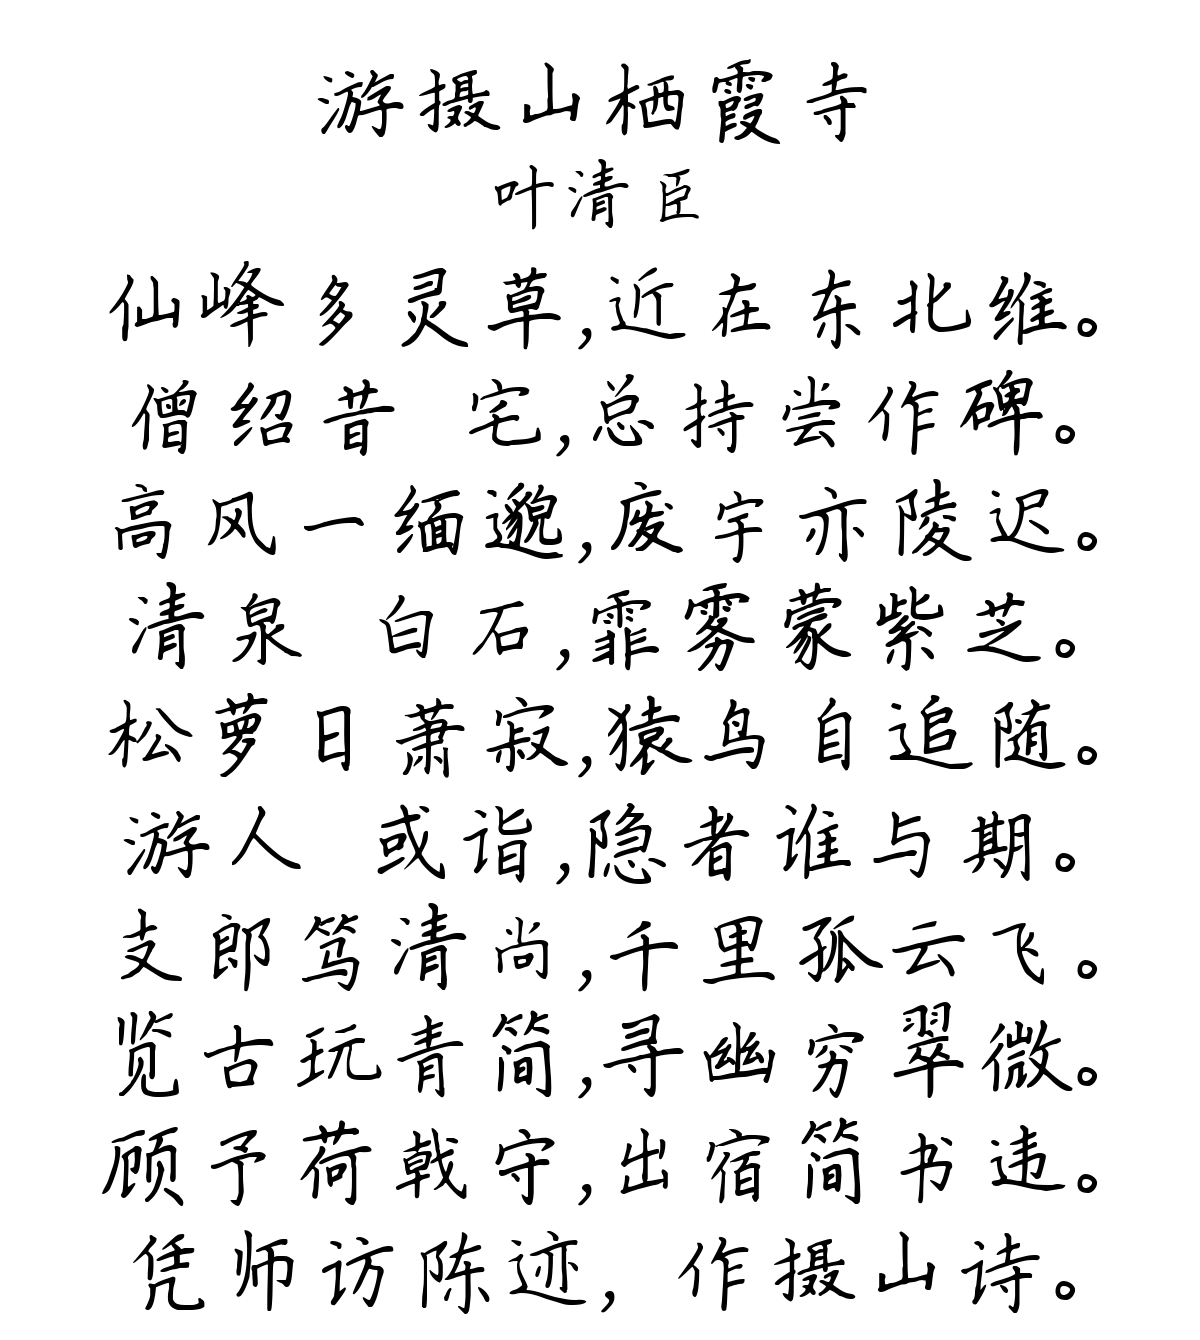 游摄山栖霞寺
叶清臣
仙峰多灵草,近在东北维。
僧绍昔 宅,总持尝作碑。
高风一缅邈,废宇亦陵迟。
清泉 白石,霏雾蒙紫芝。
松萝日萧寂,猿鸟自追随。
游人 或诣,隐者谁与期。
支郎笃清尚,千里孤云飞。
览古玩青简,寻幽穷翠微。
顾予荷戟守,出宿简书违。
凭师访陈迹, 作摄山诗。